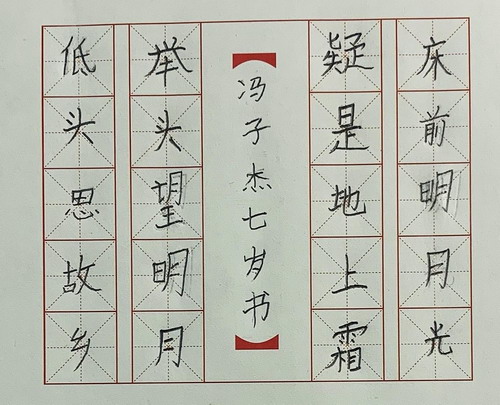 床前明月光
疑是地上霜
冯子杰七岁书
举头望明月
低头思故乡